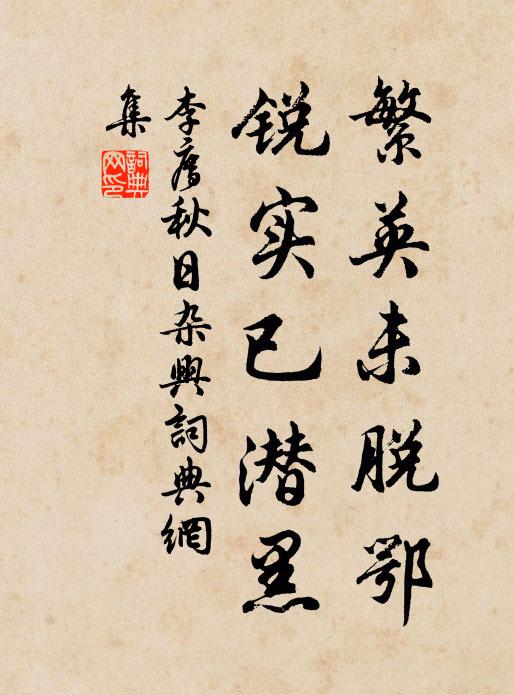 繁英未脱鄂
锐实已潜黑
李廌秋日杂興詞典網
集
詞典
网印